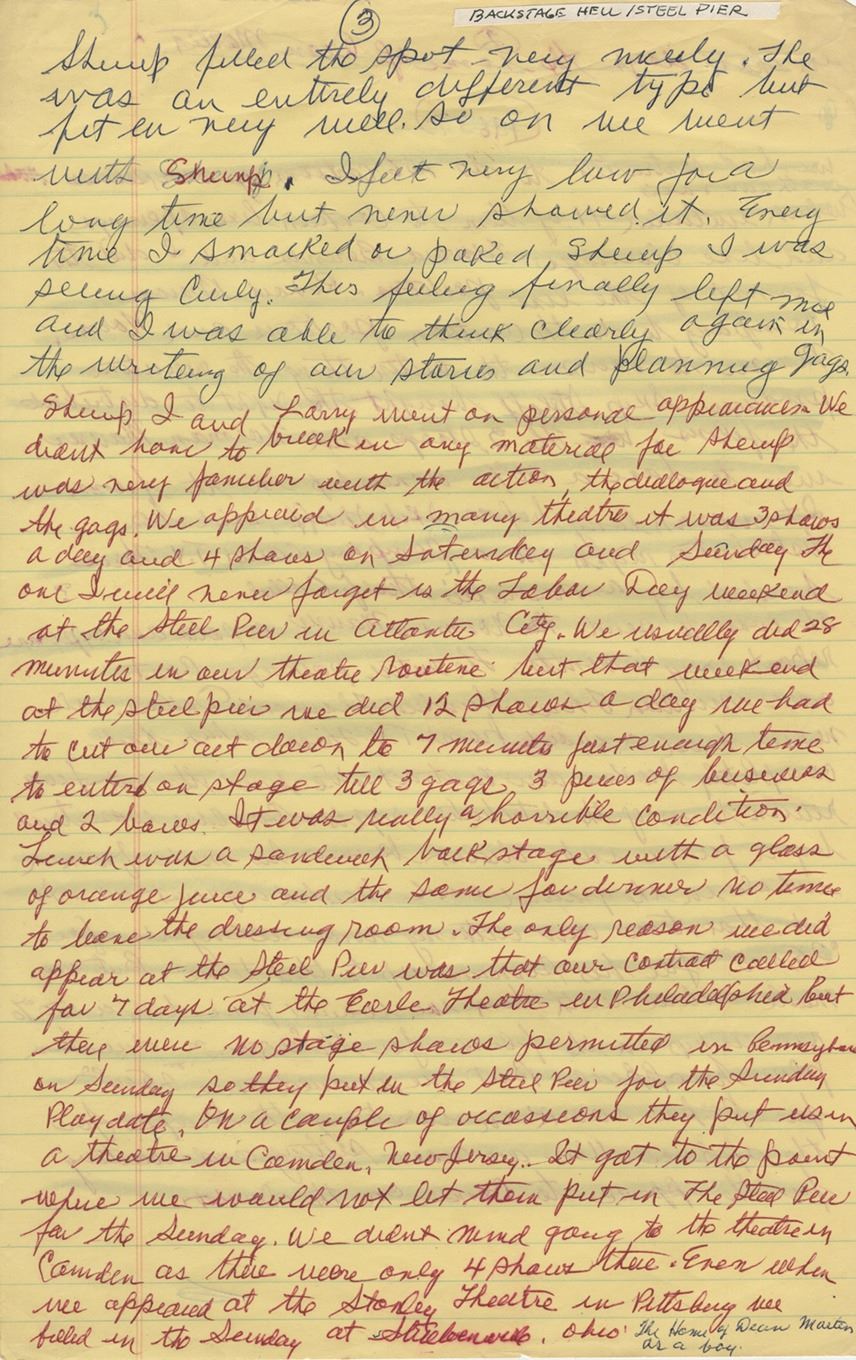 3
BACKSTAGE HELL / STEEL PIER
Shemp filled the spot very nicely. The
was an entirely different type but
fit in very well. So on we went
with Shemp. I felt very low for a
long time but never showed it. Every
time I smacked or poked Shemp I was
seeing Curly. This feeling finally left me
and I was able to think clearly again in
the writing of our stories and planning gags.
Shemp I and Larry went on personal appearances. We
didnt have to break in any material for Shemp
was very familier with the action, the dialogue and
the gags. We appeared in many theatres it was 3 shows
a day and 4 shows on Saturday and Sunday The
one I will never forget is the Labor Day weekend
at the Steel Pier in Atlantic City. We usually did 28
minutes in our theatre routine but that weekend
at the steel pier we did 12 shows a day we had
to cut our act down to 7 minutes just enough time
to enter on stage tell 3 gags, 3 pieces of business
and 2 bows. It was really a horrible condition.
Lunch was a sandwich backstage with a glass
of orange juice and the same for dinner no time
to leave the dressing room. The only reason we did
appear at the Steel Pier was that our contract called
for 7 days at the Earle Theatre in Philadelphia but
there were no stage shows permitted in Pennsylvan
on Sunday so they put in the Steel Pier for the Sunday
Playdate. On a couple of occassions they put us in
a theatre in Camden, New Jersey. It got to the point
where we would not let them put in The Steel Pier
for the Sunday. We didnt mind going to the theatre in
Camden as there were only 4 shows there. Even when
we appeared at the Stanley Theatre in Pittsburg we
filled in the Sunday at ohio The Home of Dean Martin
as a boy.